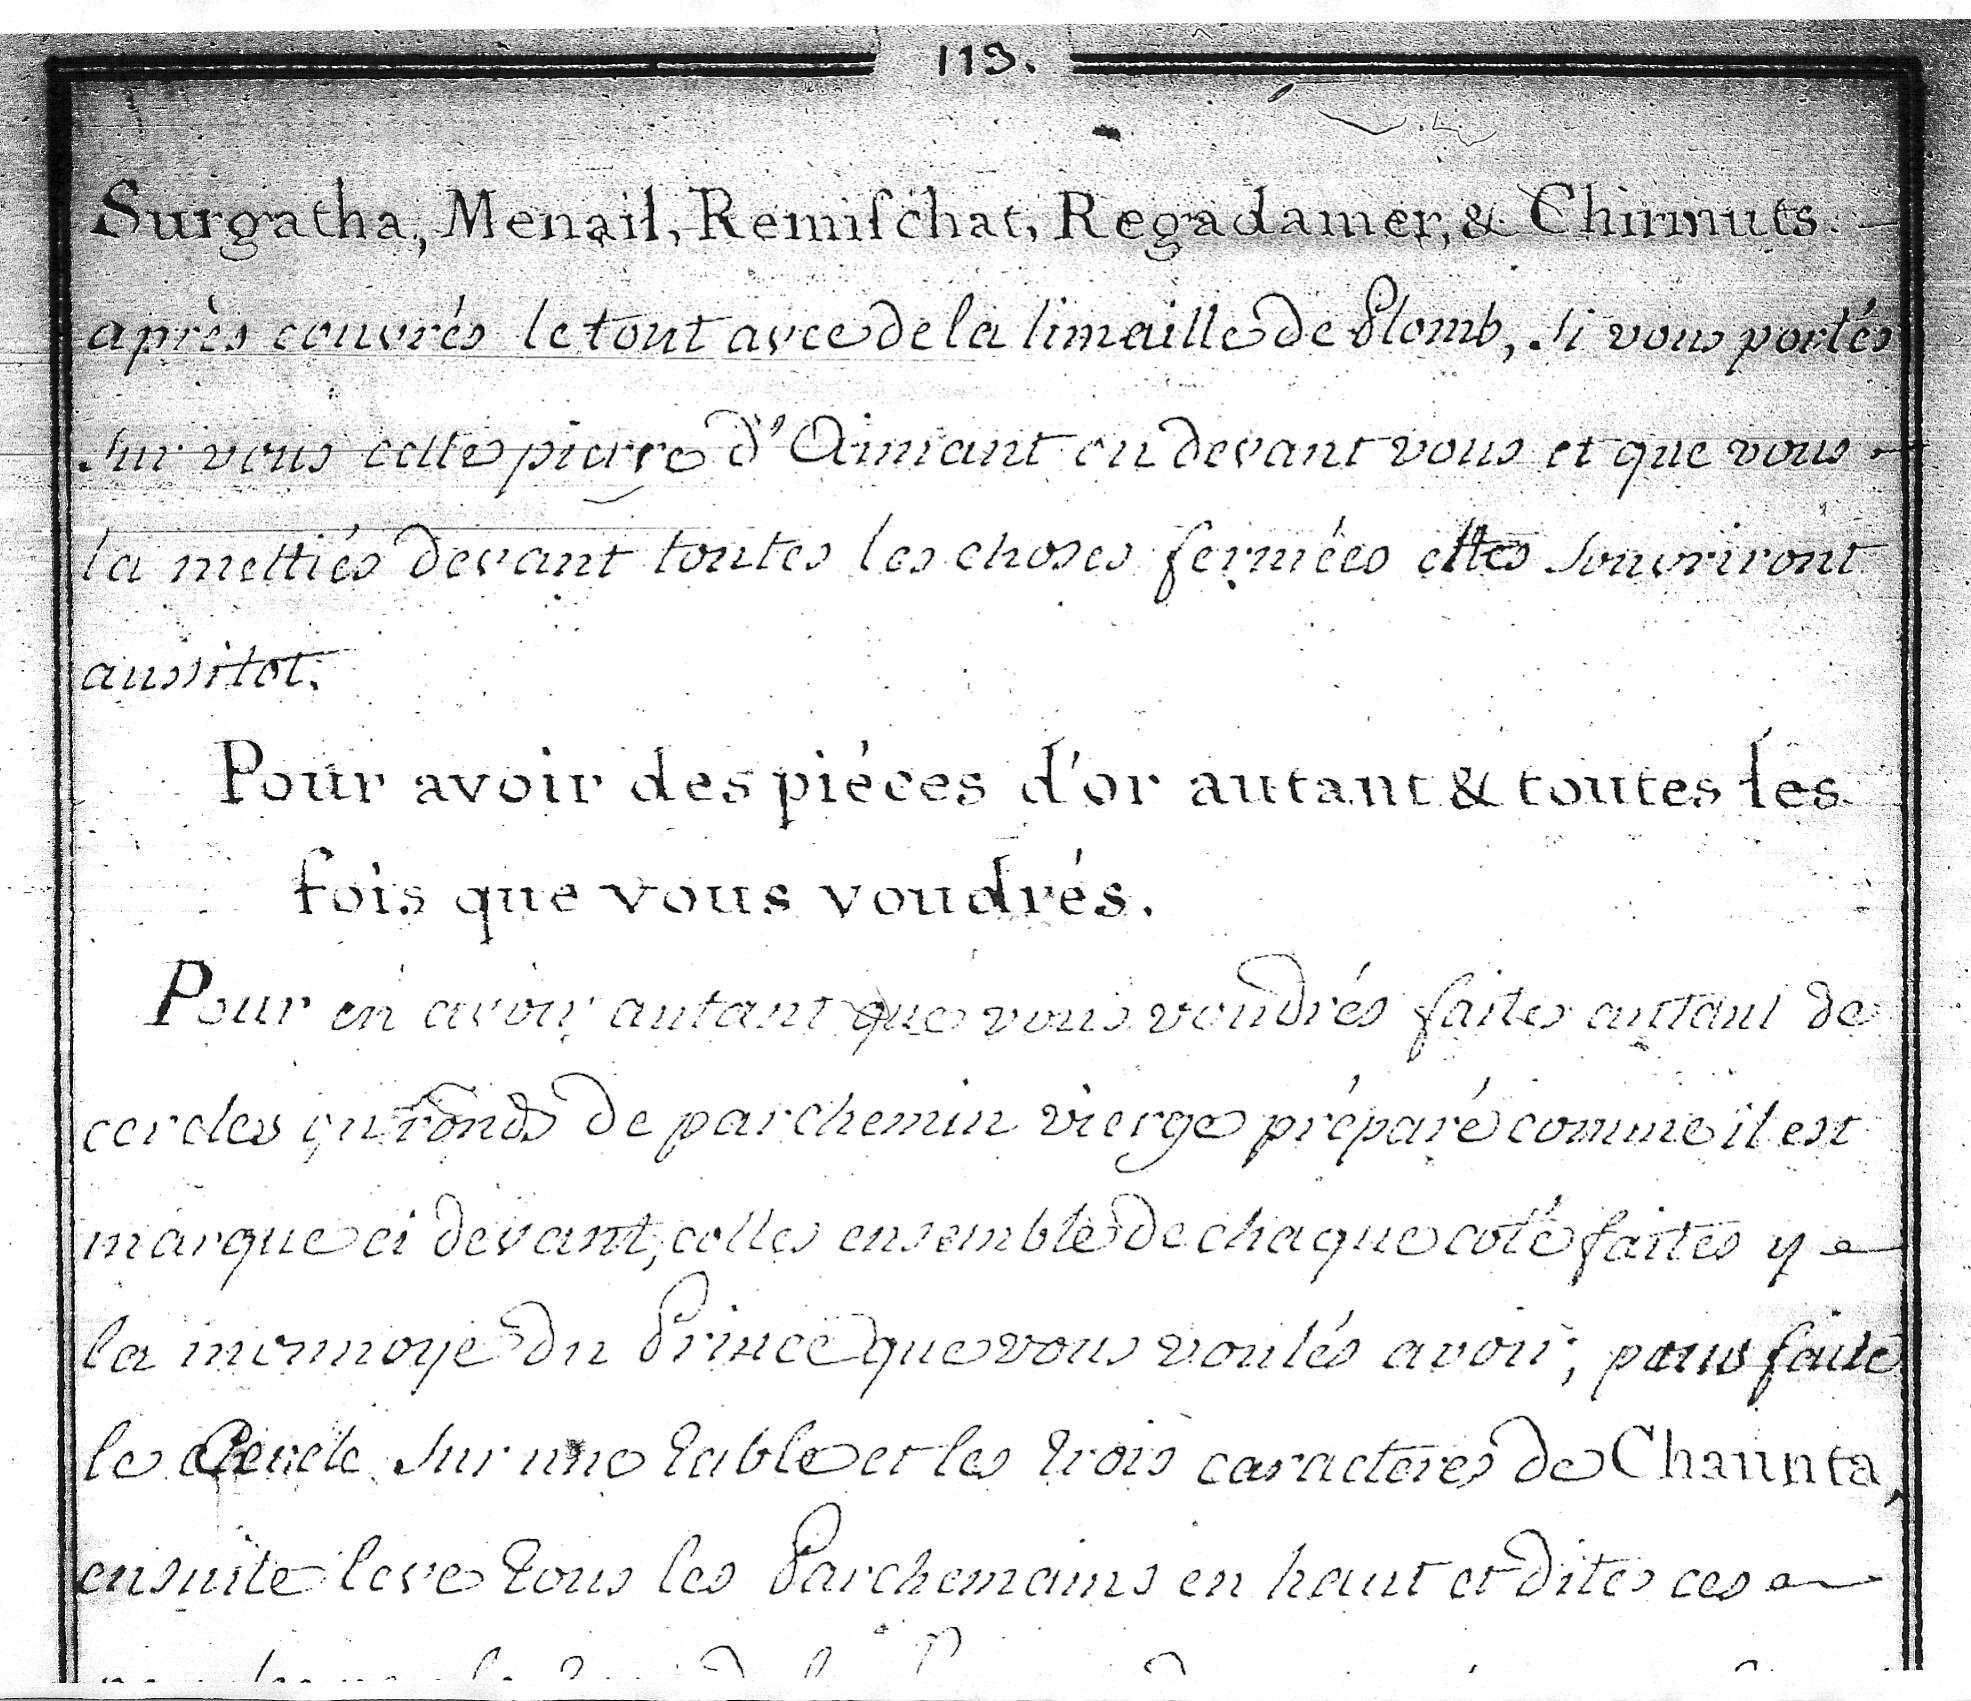 113.
Surgatha, Menail, Remiſchat, Regadamer, & Chirmuts.
après couvrés le tout avec de la limaille de Plomb, si vous portés
sur vous cette pierre d'Aimant ou devant vous et que vous
la mettiés devant toutes les choses fermées elles souvriront
aussitot.
Pour avoir des piéces d'or autant & toutes les
fois que vous voudrés.
Pour en avoir autant que vous voudrés faites autant de
cercles ronds de parchemin vierge préparé comme il est
marque ci devant, colles ensemble de chaque coté faites y
la monnoye du Prince que vous voulés avoir, puis faite
le Cercle sur une table et les trois caracteres de Chaunta,
ensuite leve tous les Parchemains en haut et dites ces